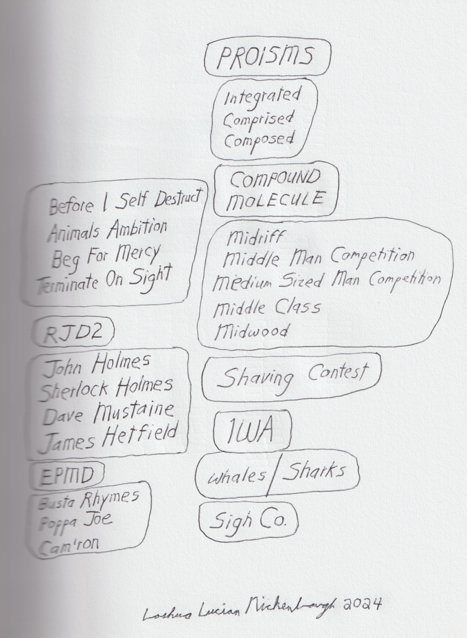 PROISMS
Integrated
Comprised
Composed
COMPOUND
MOLECULE
Midriff
Middle Man Competition
Medium Sized Man Competition
Middle Class
Midwood
Shaving Contest
IWA
Whales/Sharks
Sigh Co.
Before I Self Destruct
Animals Ambition
Beg For Mercy
Terminate On Sight
RJD2
John Holmes
Sherlock Holmes
Dave Mustaine
James Hetfield
EPMD
Busta Rhymes
Poppa Joe
Cam'ron
Lucian 2024